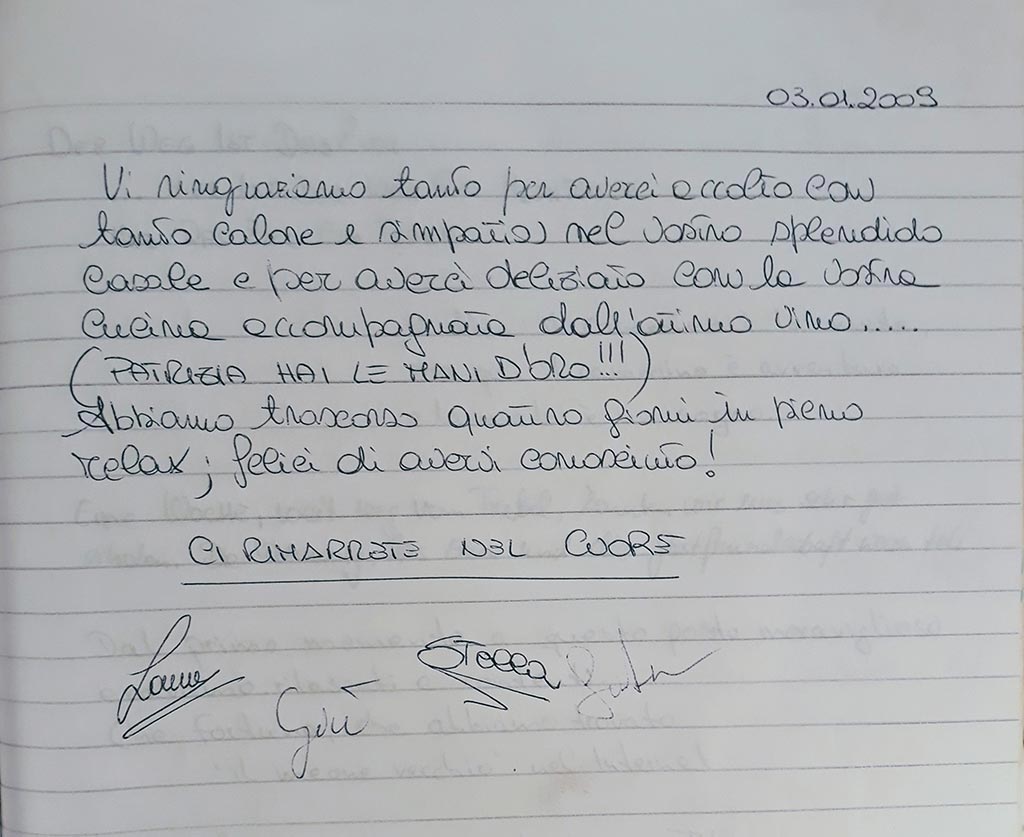 03.01.2009
Vi ringraziamo tanto per averci accolto con
tanto calore e simpatia nel vostro splendido
casale e per averci deliziato con la vostra
cucina accompagnata dall'ottimo vino.....
(PATRIZIA HAI LE MANI D'ORO!!!)
Abbiamo trascorso quattro giorni in pieno
relax; felici di avervi conosciuto!
CI RIMARRETE NEL CUORE
Stella